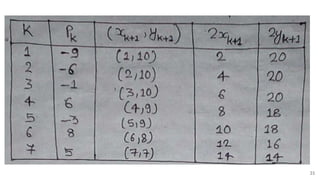 K Pk (xk+1, yk+1) 2xk+1 2yk+1
1 -9 (1,10) 2 20
2 -6 (2,10) 4 20
3 -1 (3,10) 6 20
4 6 (4,9) 8 18
5 -3 (5,9) 10 18
6 8 (6,8) 12 16
7 5 (7,7) 14 14